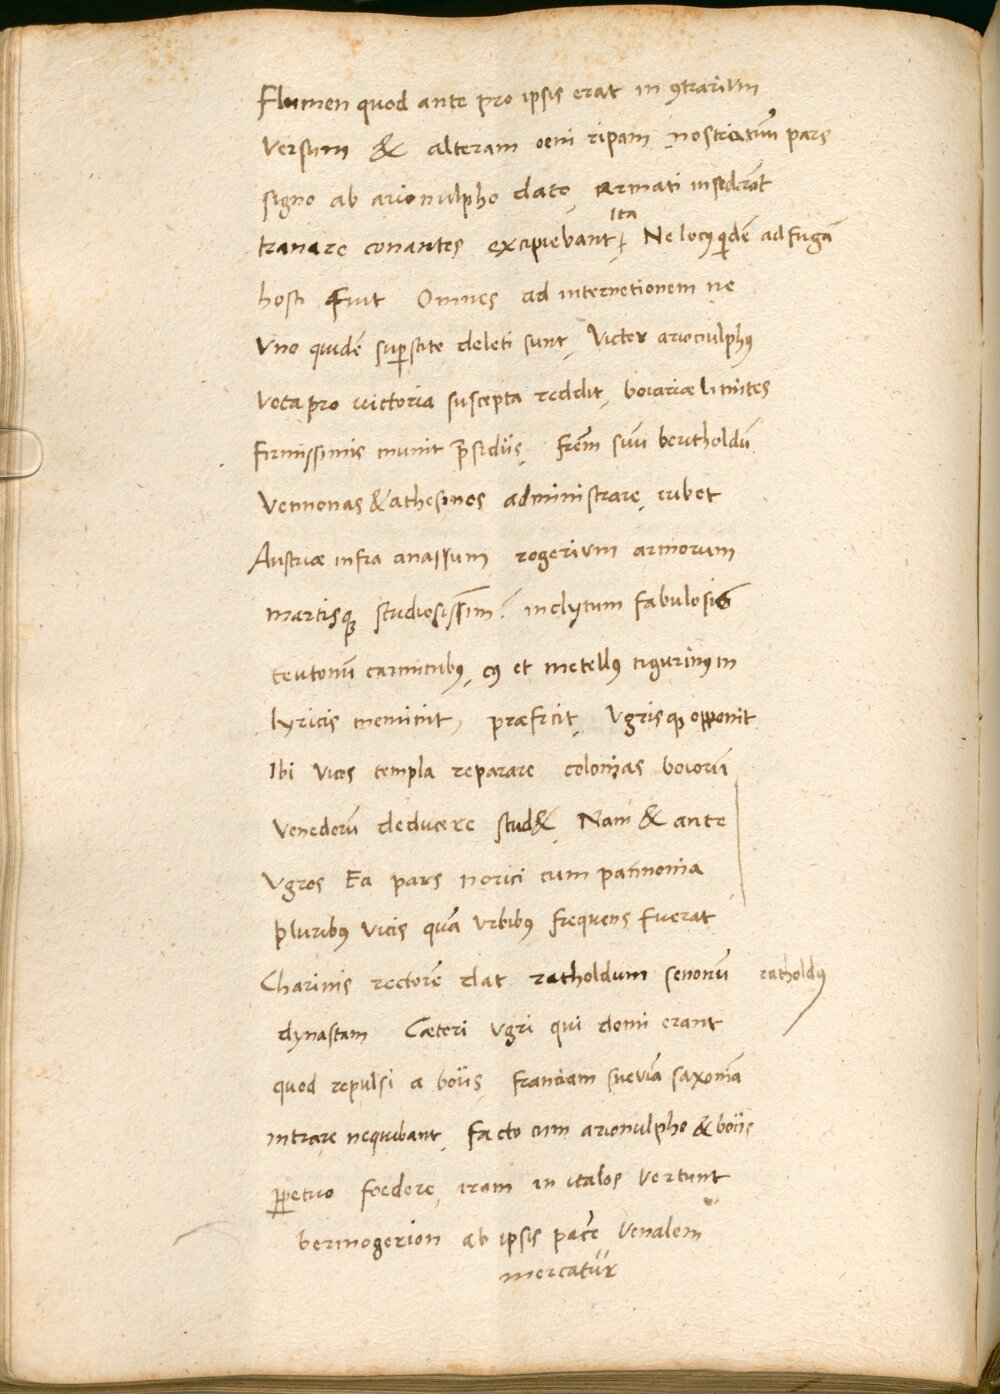 Flumen quod ante pro ipsis erat in ꝯtrarium
versum & alteram oeni ripam nostratiū pars
signo ab arionulpho dato, armati insedrāt
tranare conantes excipiebant, Ita Ne locꝰ qidē ad fugā
hosti fuit Omnes ad internetionem ne
Vno quidē suꝑstite deleti sunt, Victor arionulphꝰ
Vota pro victoria suscepta reddit, boiariæ limites
firmissimis munit p̄sidijs, frēm suū bertholdū
Vennonas & athesinos administrare, iubet
Austriæ infra anassum rogerium armorum
martisqꝫ studiosissim̄ inclytum fabulosis
teutonū carminibꝰ, cꝰ et metellꝰ tigurinꝰ in
lyricis meminit, præficit, Vgrisqꝫ opponit
Ibi vicos templa reparare colonias boiorū
Venedorū deducere stud&, Nam & ante
Vgros Ea pars norici cum pannonia
pluribꝰ vicis quā vrbibꝰ frequens fuerat
Charinis rectorē dat ratholdum senonū ratholdꝰ
dynastam Cæteri vgri qui domi erant
quod repulsi a boijs, franciam sueviā saxoniā
intrare nequibant, facto cum arionulpho & boijs
ꝑpetuo foedere, iram in italos vertunt
bermogerion ab ipsis pacē venalem
mercatur